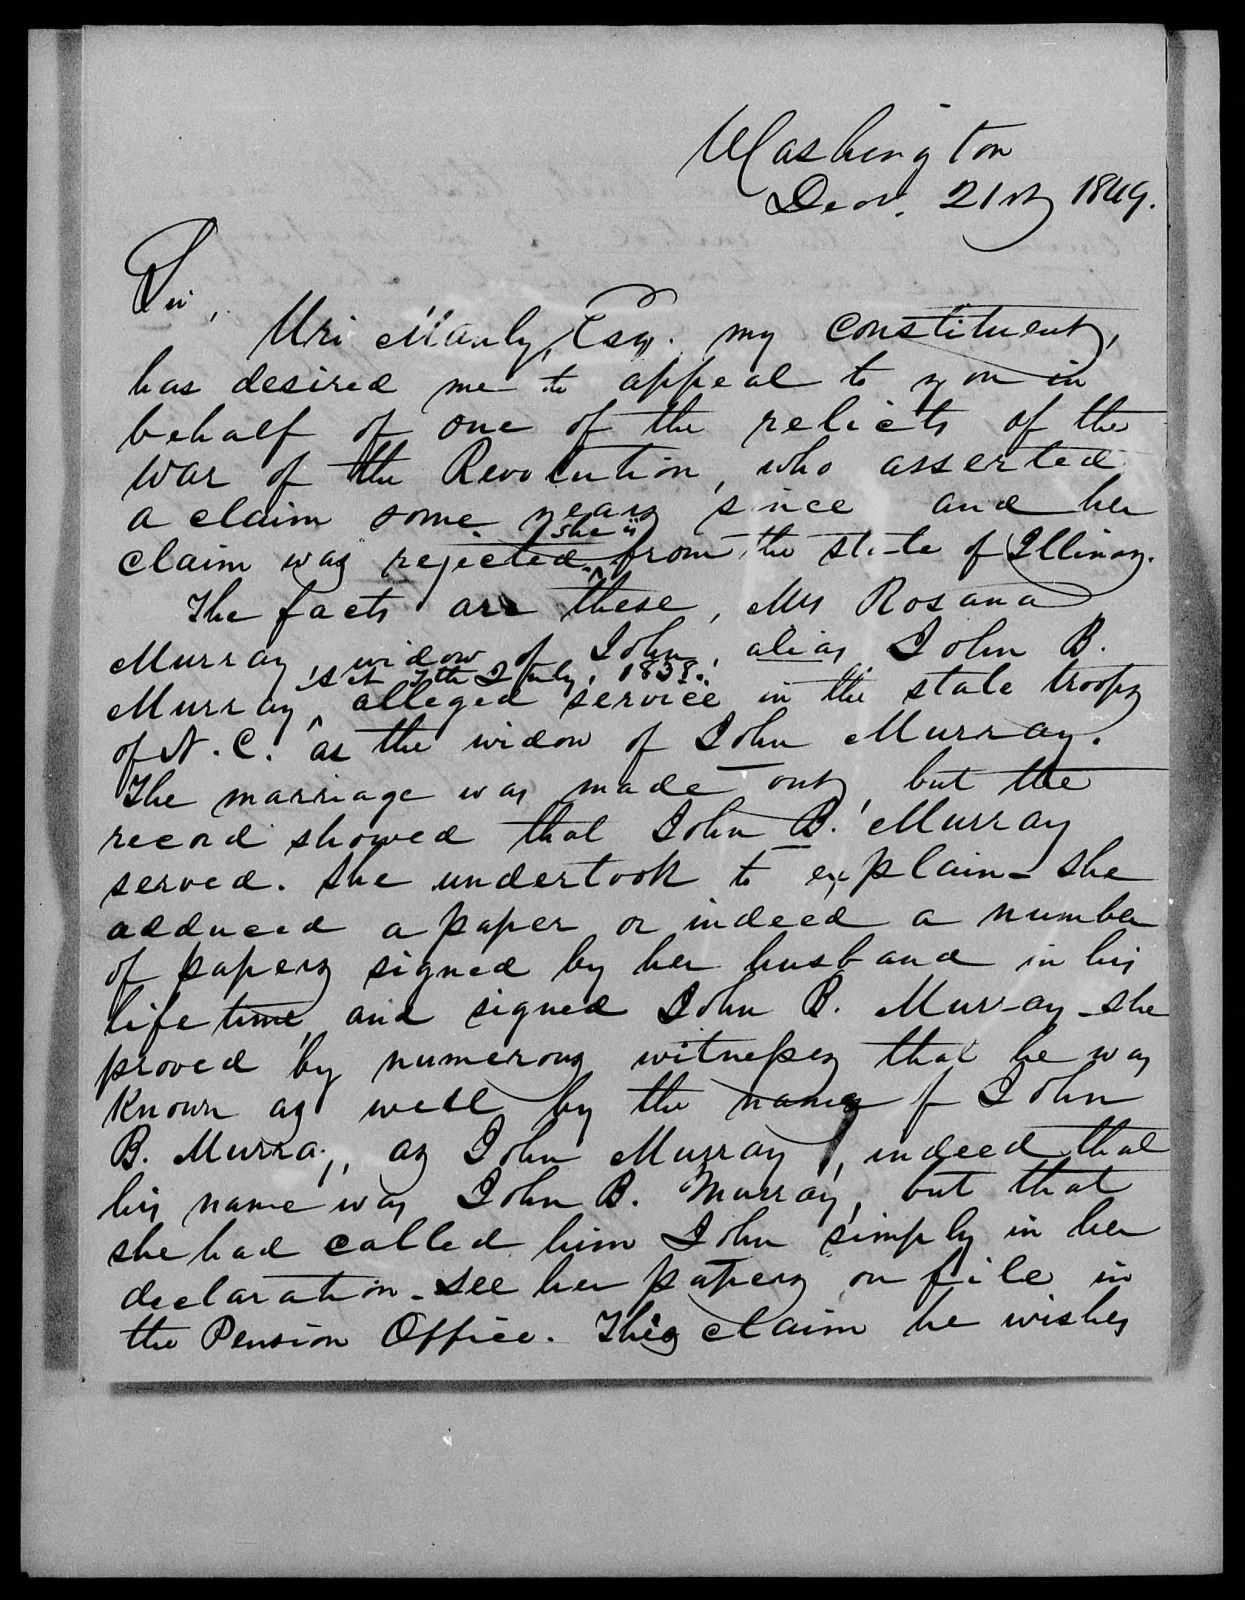 Washington
Decr. 21st 1849.
Sir,
Uri Manly, Esqr. my constituent,
has desired me to appeal to you in
behalf of one of the relicts of the
War of the Revolution, who asserted
a claim some years since and her
she is
claim was rejected. from the state of Illinois.
The facts are these, Mrs Rosana
Murray, widow of John, alias John B.
7th July, 1838.
Murray, alleged service in the state troops
of N. C. as the widow of John Murray.
The marriage was made out, but the
record showed that John B. Murray
served. She undertook to explain - she
adduced a paper or indeed a number
of papers signed by her husband in his
life time, and signed John B. Murray - she
proved by numerous witnesses that he was
known as well by the name of John
B. Murray, as John Murray, indeed that
his name was John B. Murray, but that
she had called him John simply in her
declaration - see her papers on file in
the Pension Office. This claim he wishes